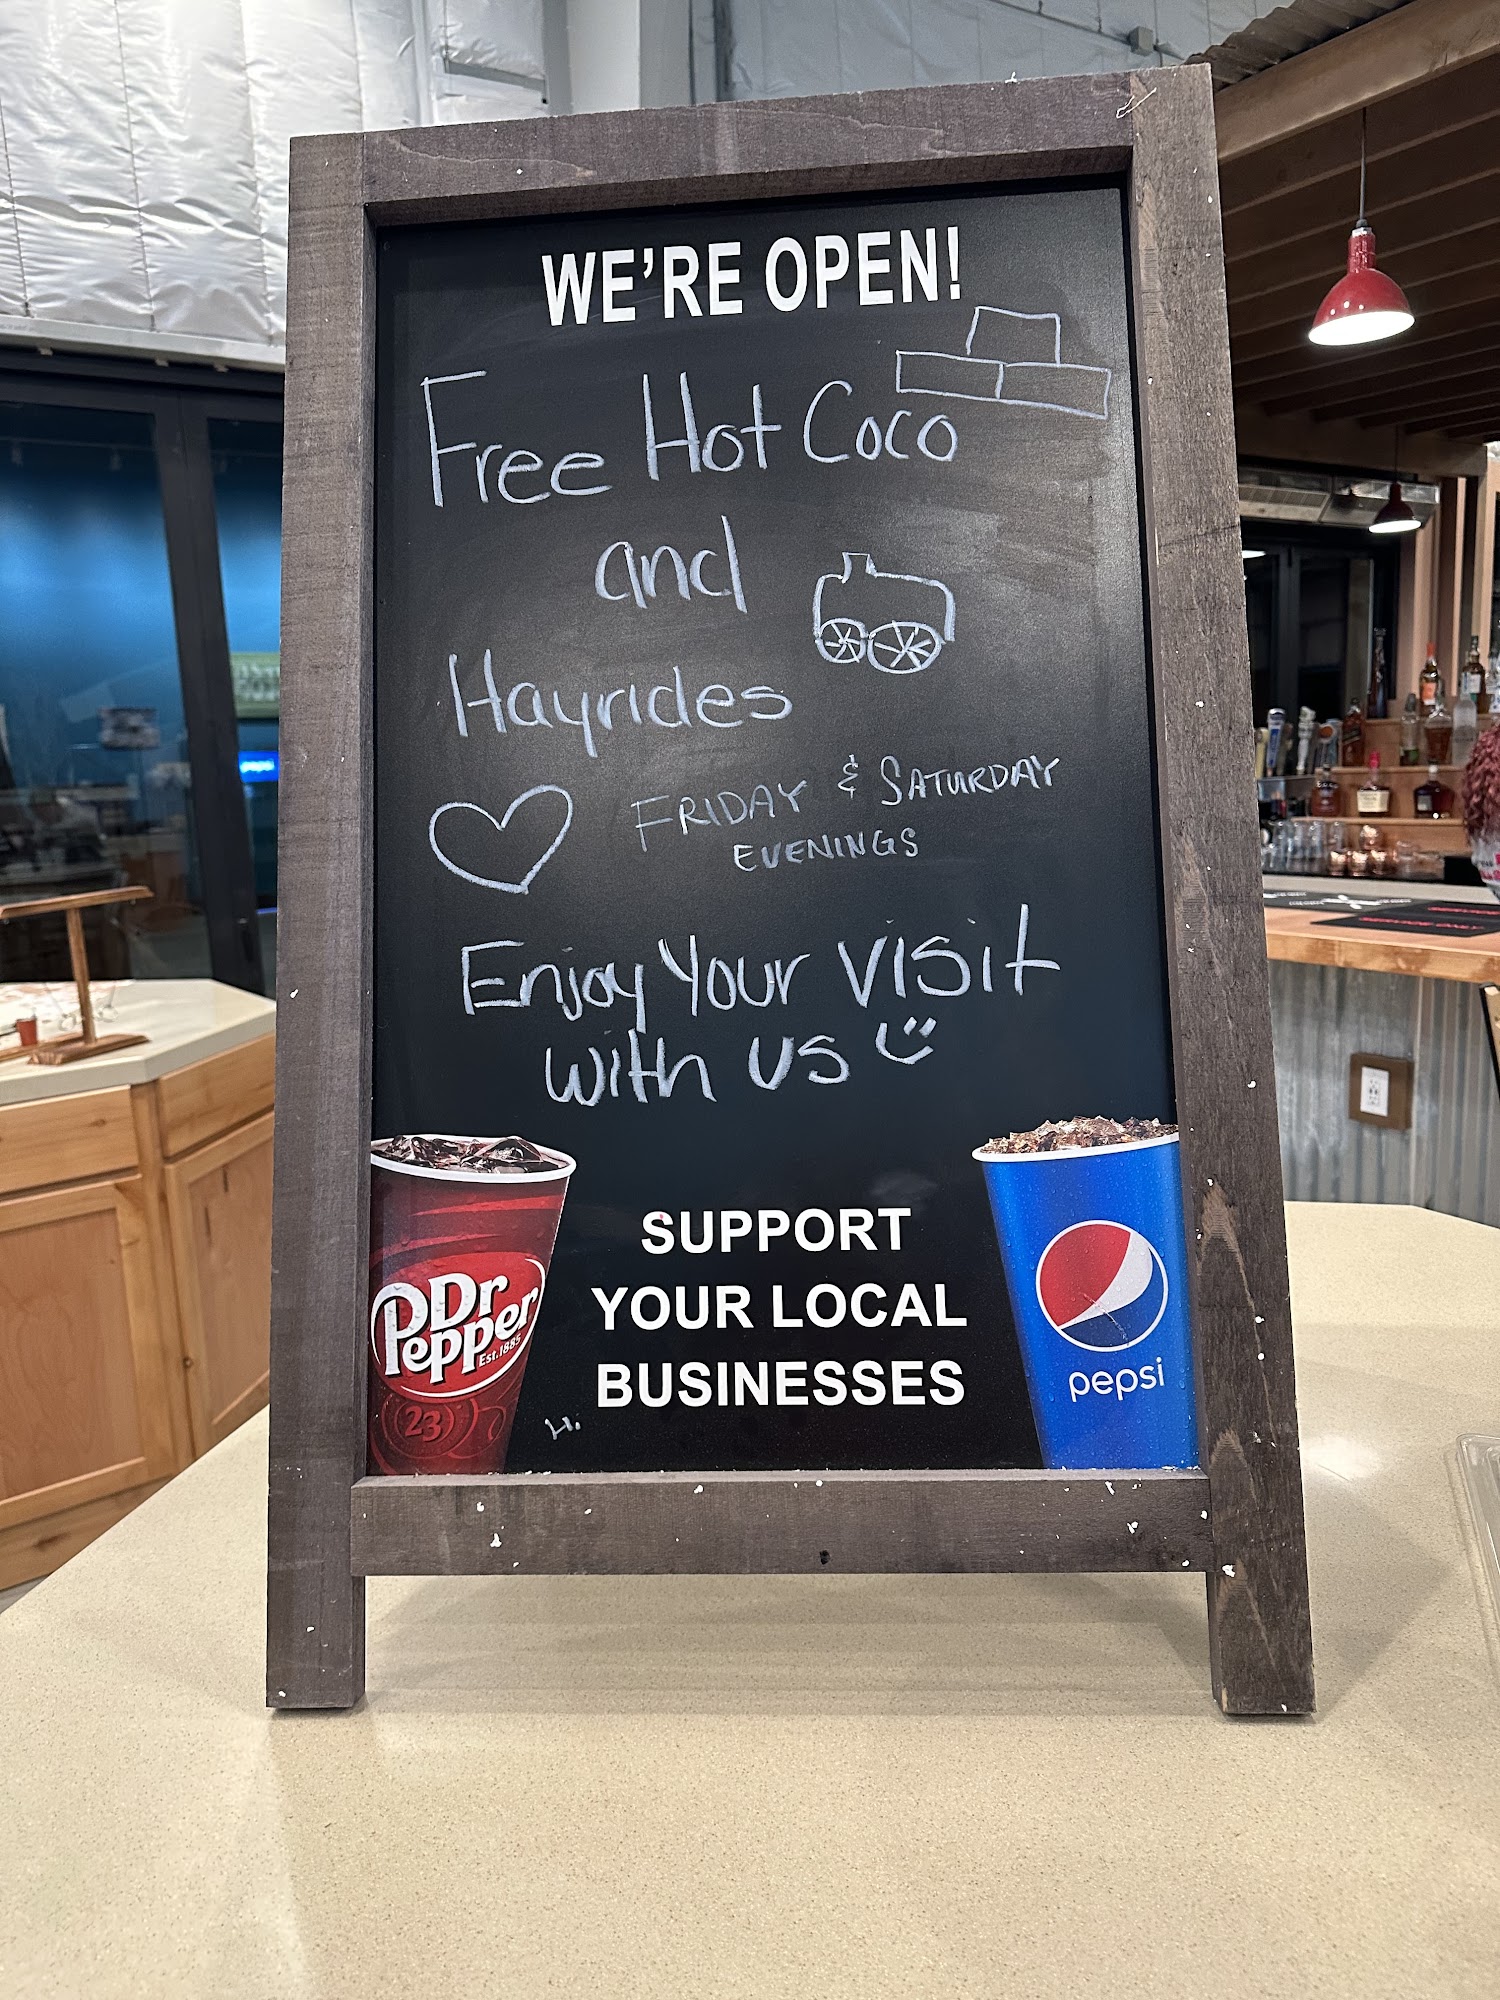 WE'RE OPEN!
Free Hot Coco
and
Hayrides
FRIDAY & SATURDAY
EVENINGS
Enjoy Your visit
with us
Dr
Pepper
Est. 1885
23
SUPPORT
YOUR LOCAL
BUSINESSES
pepsi